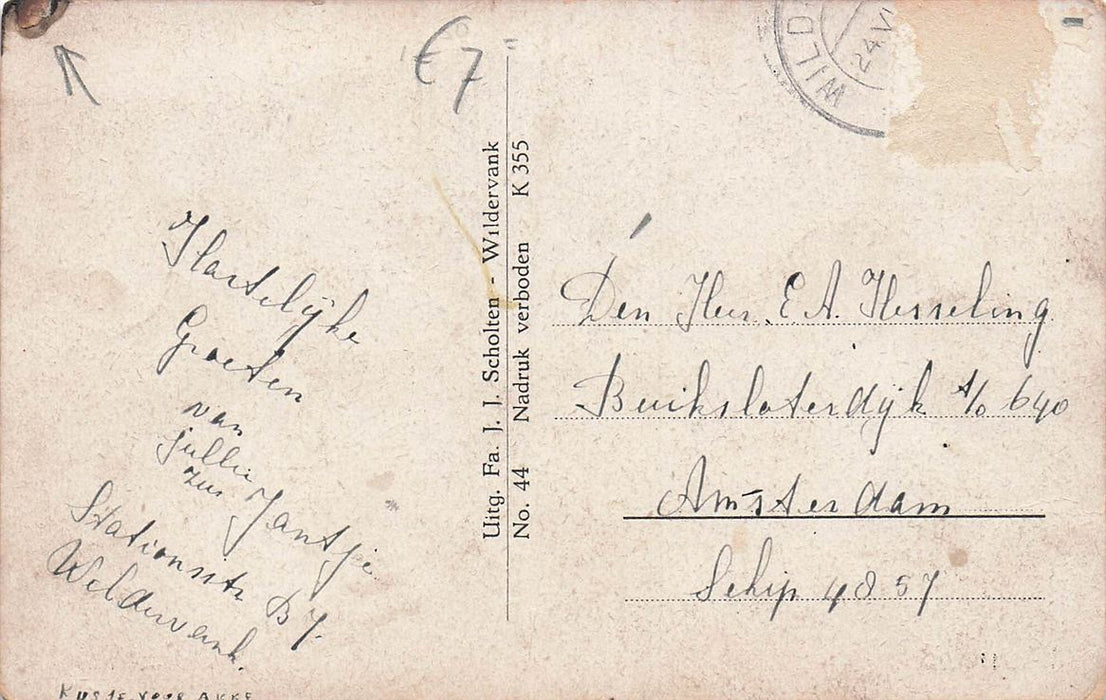 € 7=
WILD
24.VI
Hartelijke
Groeten
van
jullie
zus Jantje
Stationsstr B 7.
Wildervank.
KUSJE VOOR AKKE
Uitg. Fa. J. J. Scholten - Wildervank
No. 44 Nadruk verboden K 355
Den Heer E A. Hesseling
Buiksloterdijk t/o 640
Amsterdam
Schip 4857